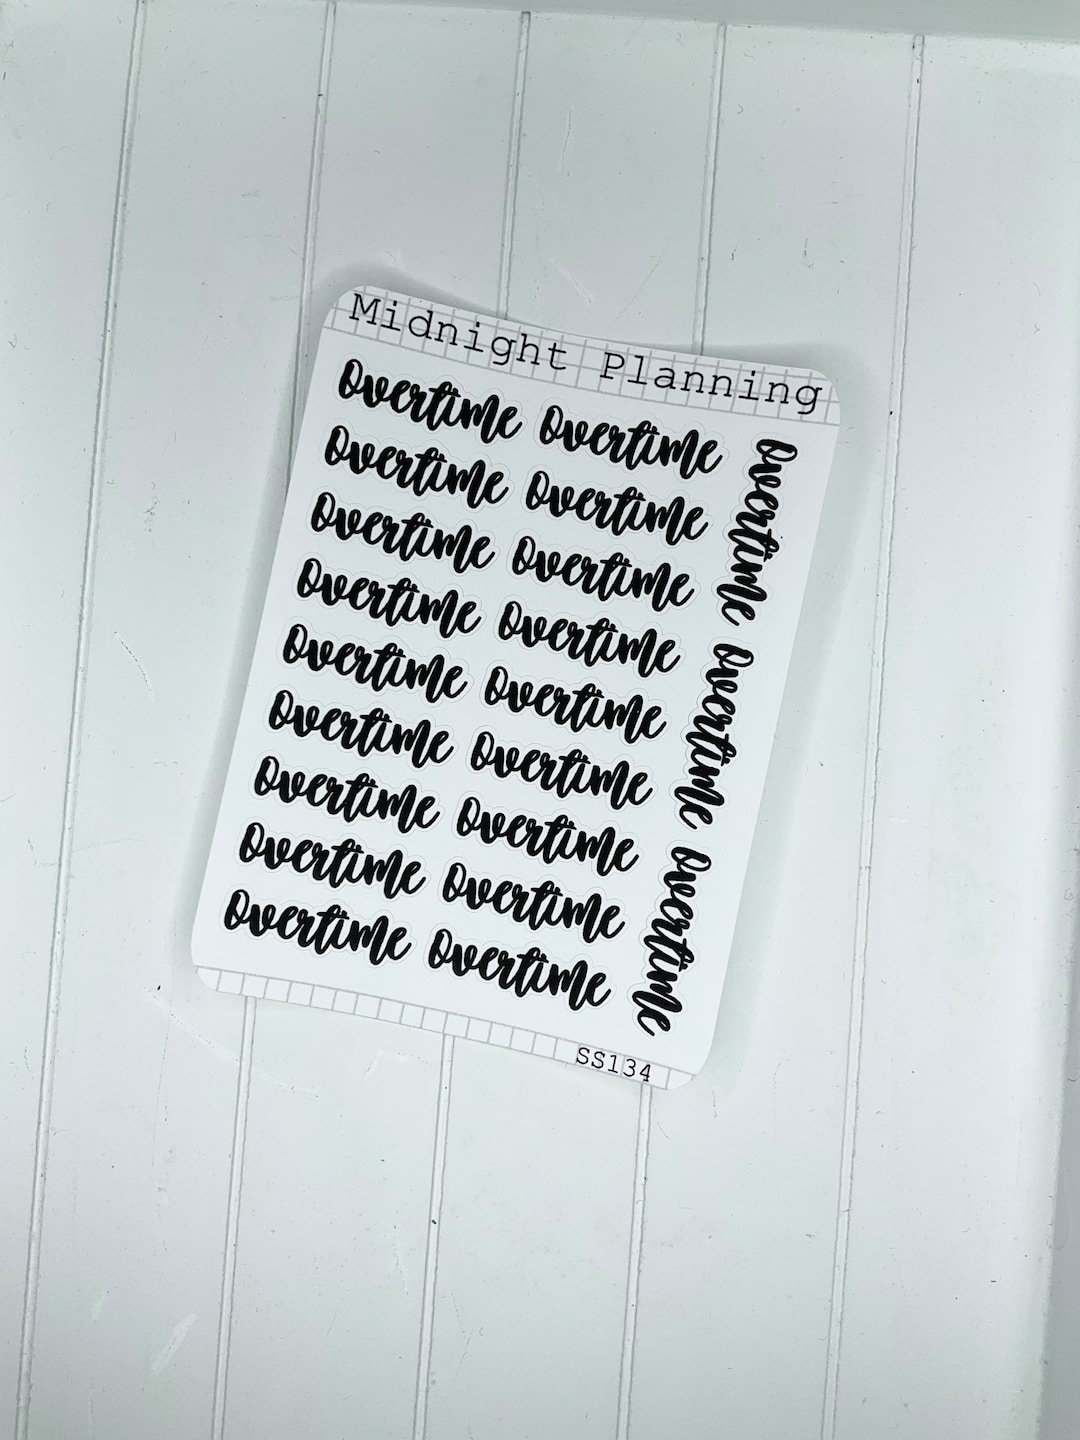 Midnight Planning
Overtime Overtime
Overtime Overtime
Overtime Overtime
Overtime Overtime
Overtime Overtime
Overtime Overtime
Overtime Overtime
Overtime Overtime
Overtime Overtime
Overtime Overtime Overtime
SS134